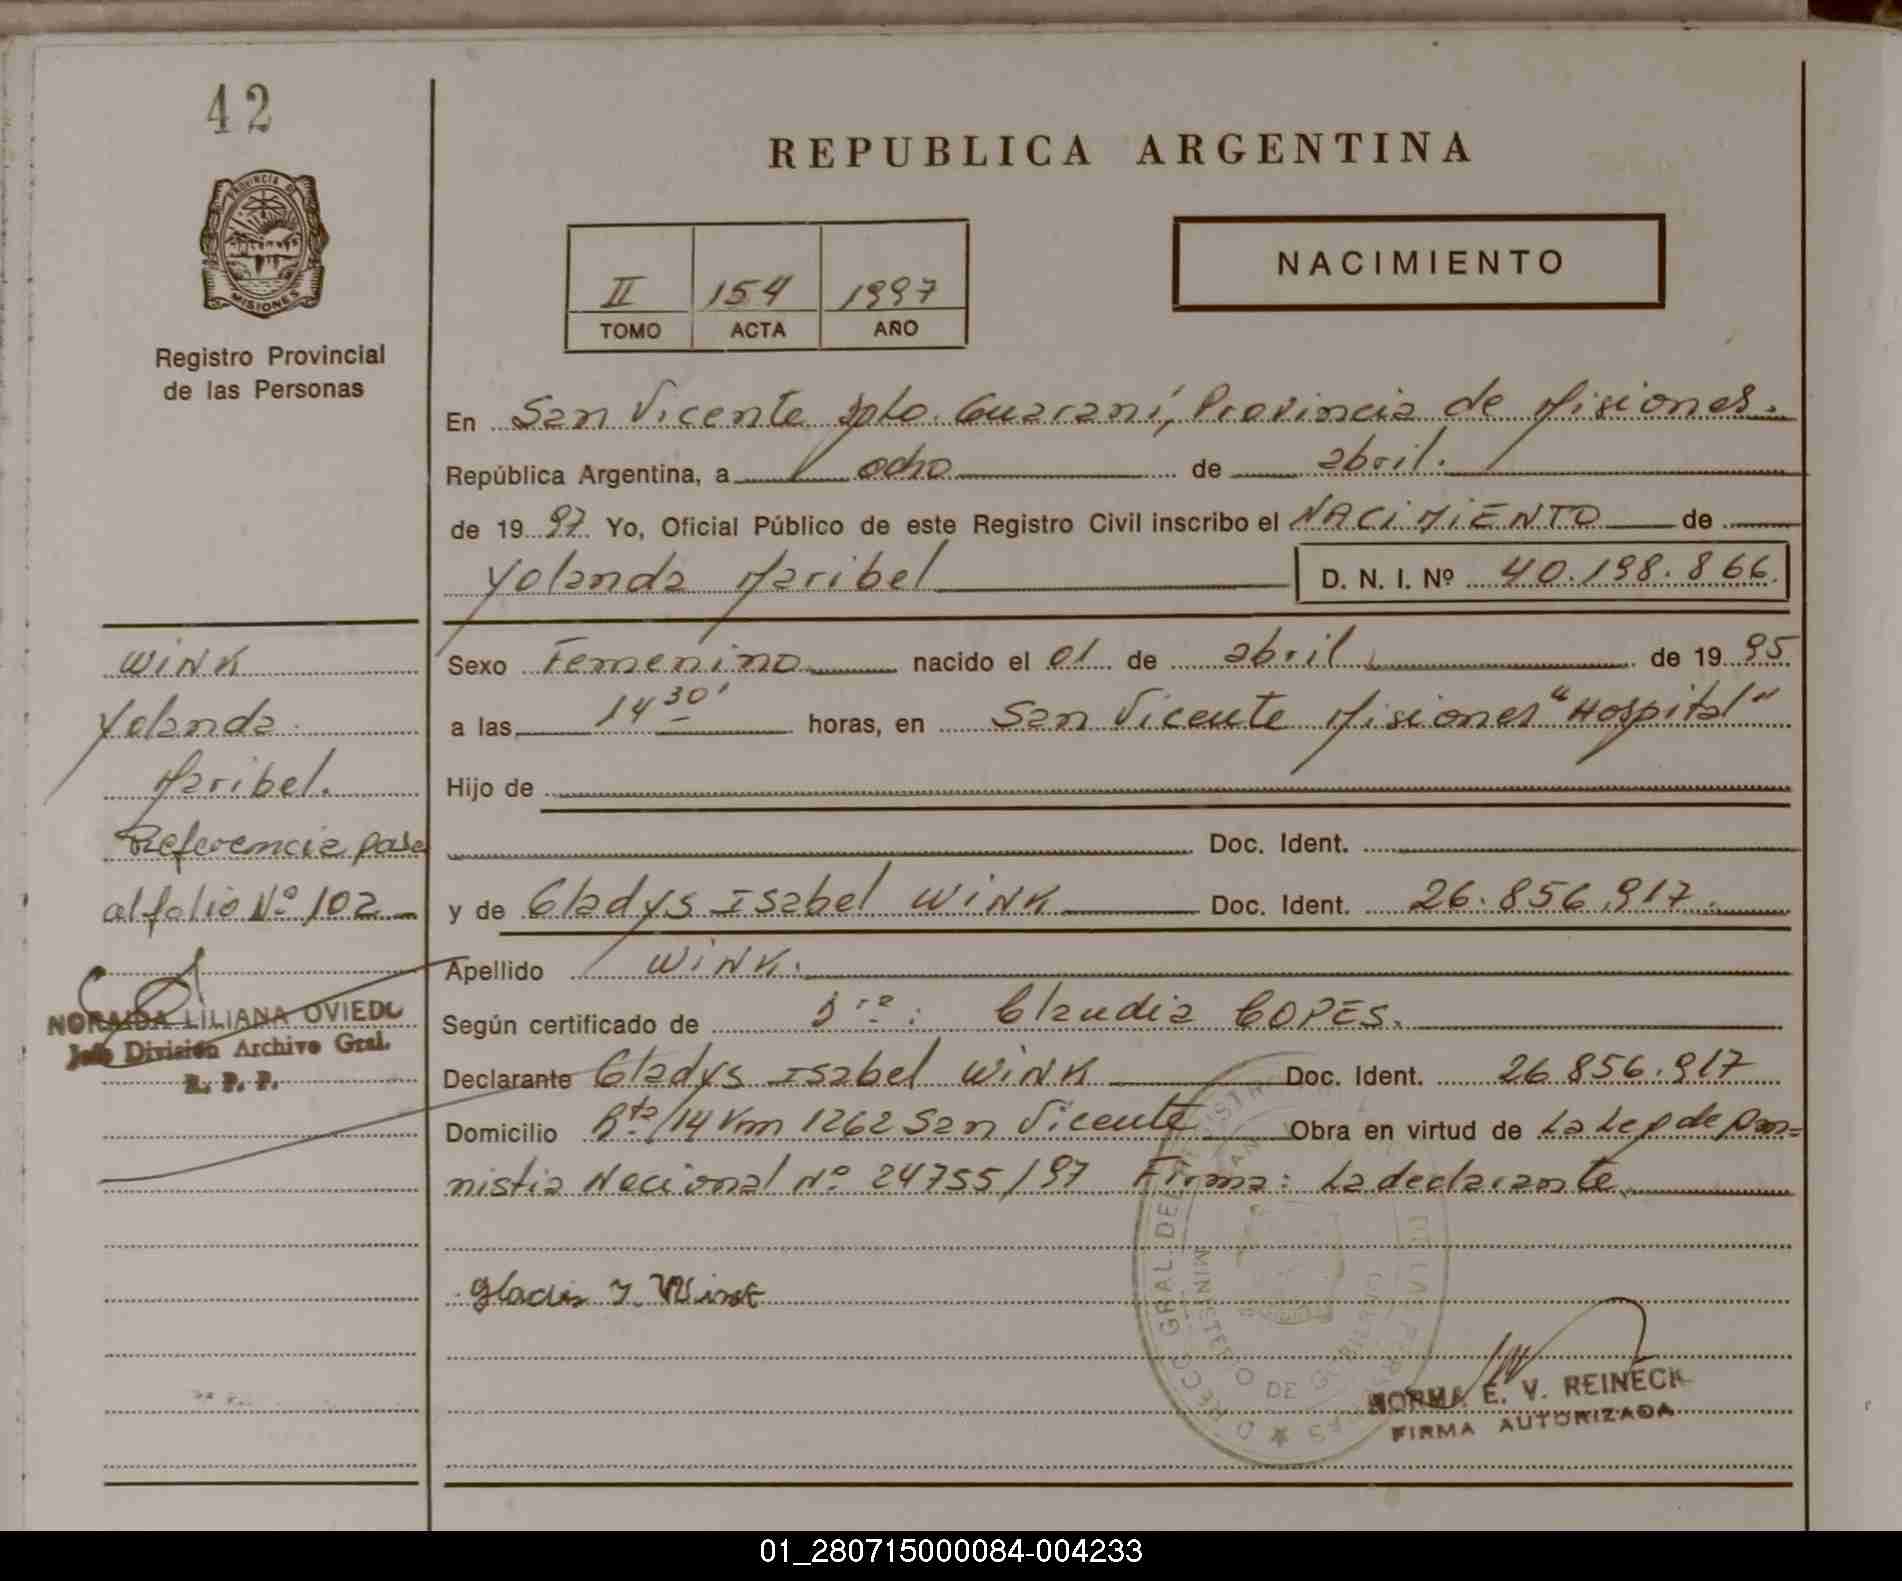 42
PROVINCIA DE
MISIONES
Registro Provincial
de las Personas
REPUBLICA ARGENTINA
II 154 1997
TOMO ACTA AÑO
NACIMIENTO
En San Vicente Dpto. Guaraní, Provincia de Misiones.
República Argentina, a ocho de abril.
de 1997. Yo, Oficial Público de este Registro Civil inscribo el NACIMIENTO de
Yolanda Maribel D. N. I. Nº 40.198.866
WINK
Yolanda
Maribel.
Referencia pase
al folio Nº 102
NORAIDA LILIANA OVIEDO
Jefe División Archivo Gral.
R. P. P.
Sexo Femenino nacido el 01 de abril de 1995
a las 14 30' horas, en San Vicente Misiones "Hospital"
Hijo de
Doc. Ident.
y de Gladys Isabel WINK Doc. Ident. 26.856.917.
Apellido WINK.
Según certificado de Dra: Claudia COPES.
Declarante Gladys Isabel WINK Doc. Ident. 26.856.917
Domicilio Rta/14 Km 1262 San Vicente Obra en virtud de La Ley de Am=
nistia Nacional Nº 24755/97 Firma: La declarante
Gladis I. Wink
NORMA E. V. REINECK
FIRMA AUTORIZADA
01_280715000084-004233